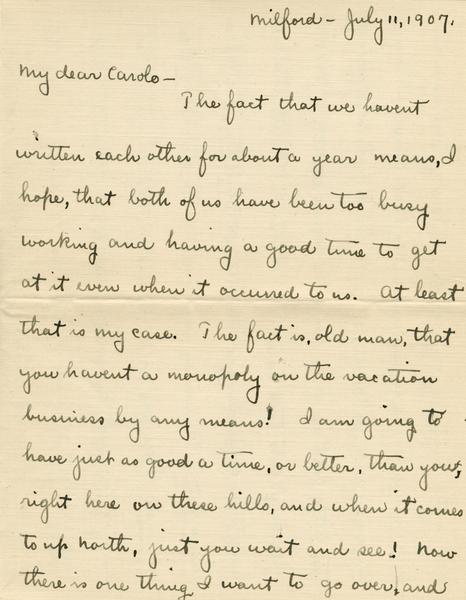 Milford - July 11, 1907.
My dear Carolo -
The fact that we havent
written each other for about a year means, I
hope, that both of us have been too busy
working and having a good time to get
at it even when it occurred to us. At least
that is my case. The fact is, old man, that
you havent a monopoly on the vacation
business by any means! I am going to
have just as good a time, or better, than you,
right here on these hills, and when it comes
to up North, just you wait and see! Now
there is one thing I want to go over, and